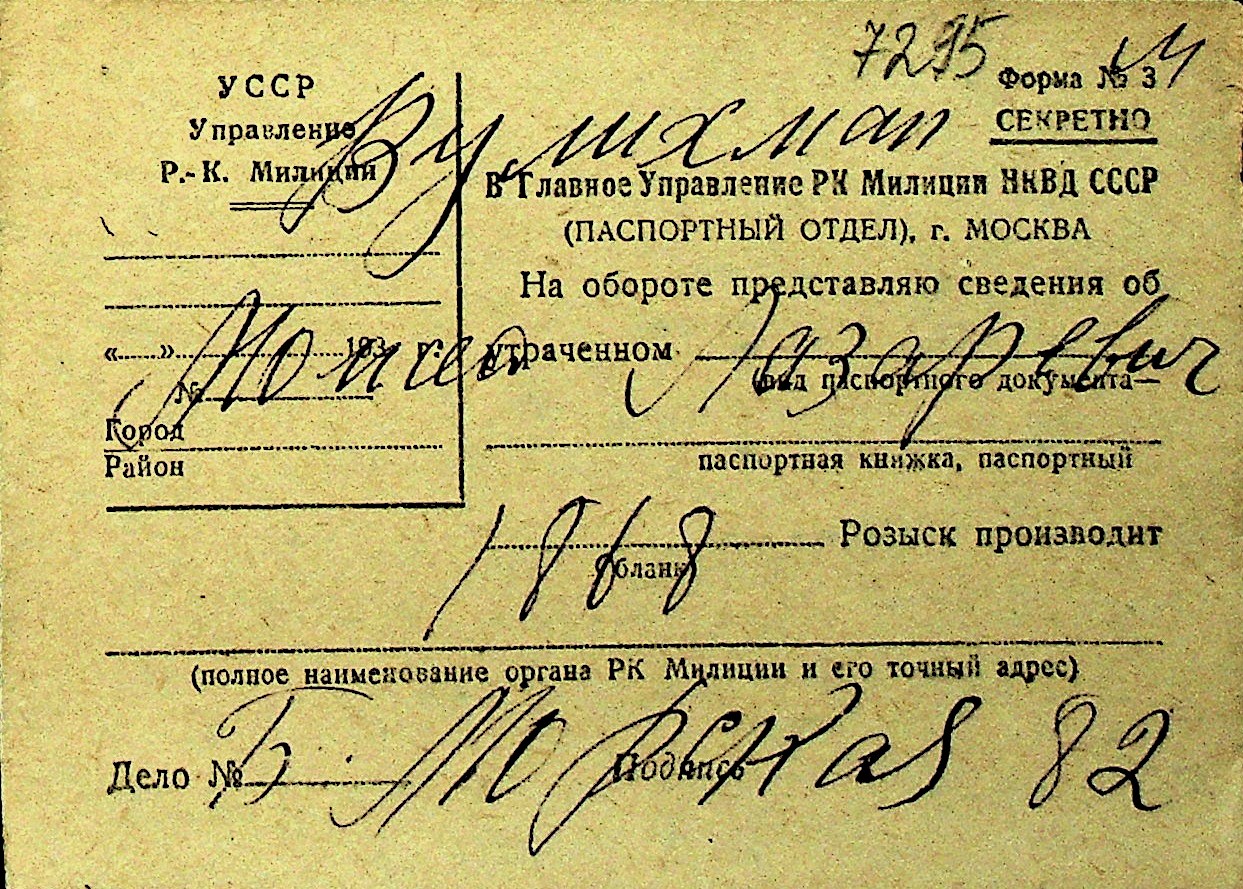 7295
Форма № 3
СЕКРЕТНО
УССР
Управление
Р.-К. Милиции
« » 193 г.
№
Город
Район
Вулихман
В Главное Управление РК Милиции НКВД СССР
(ПАСПОРТНЫЙ ОТДЕЛ), г. МОСКВА
На обороте представляю сведения об
утраченном
(вид паспортного документа—
Лазаревич
паспортная книжка, паспортный
бланк)
Розыск производит
1868
(полное наименование органа РК Милиции и его точный адрес)
Б. Морская 82
Дело №
Подпись